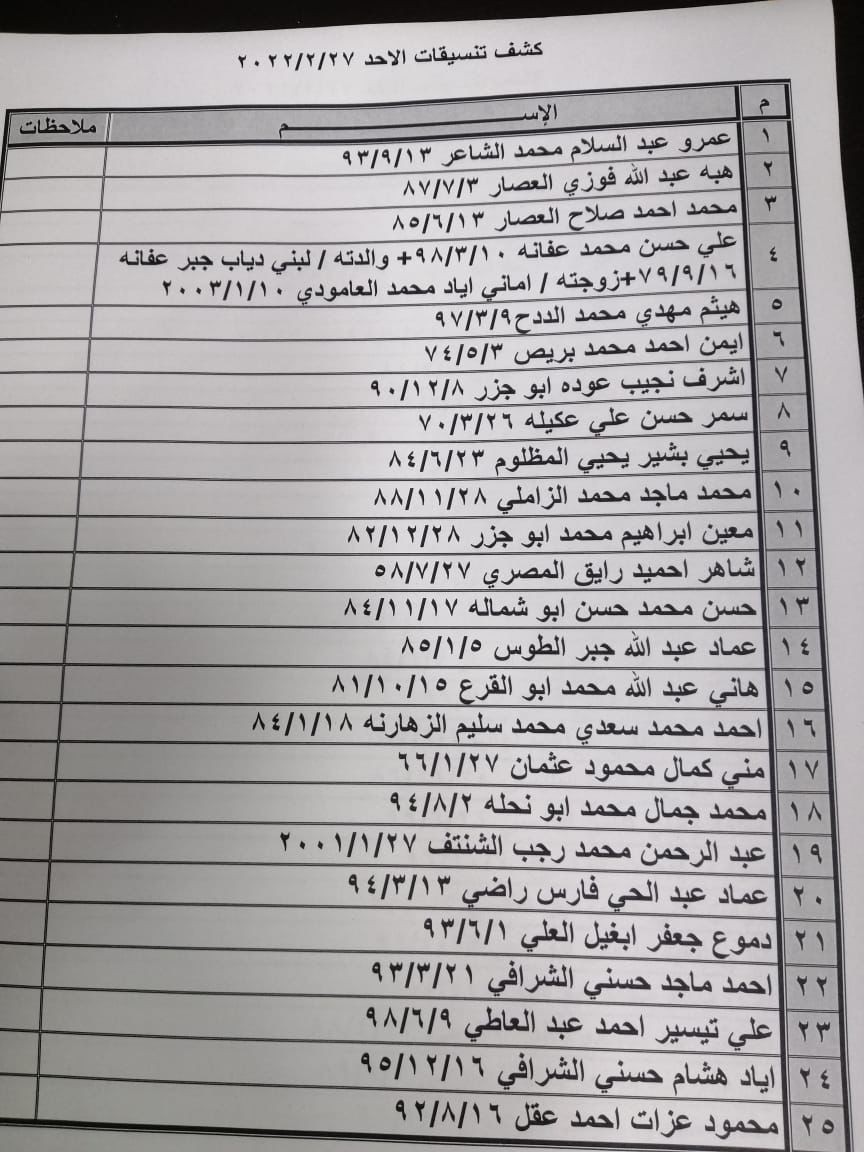 كشف تنسيقات الاحد ٢٠٢٢/٢/٢٧
م الإســـــــــــــــــــم ملاحظات
١ عمرو عبد السلام محمد الشاعر ٩٣/٩/١٣
٢ هبه عبد الله فوزي العصار ٨٧/٧/٣
٣ محمد احمد صلاح العصار ٨٥/٦/١٣
٤ علي حسن محمد عفانه ٩٨/٣/١٠+ والدته / لبني دياب جبر عفانه
٧٩/٩/١٦+زوجته / اماني اياد محمد العامودي ٢٠٠٣/١/١٠
٥ هيثم مهدي محمد الددح٩٧/٣/٩
٦ ايمن احمد محمد بريص ٧٤/٥/٣
٧ اشرف نجيب عوده ابو جزر ٩٠/١٢/٨
٨ سمر حسن علي عكيله ٧٠/٣/٢٦
٩ يحيي بشير يحيي المظلوم ٨٤/٦/٢٣
١٠ محمد ماجد محمد الزاملي ٨٨/١١/٢٨
١١ معين ابراهيم محمد ابو جزر ٨٢/١٢/٢٨
١٢ شاهر احميد رايق المصري ٥٨/٧/٢٧
١٣ حسن محمد حسن ابو شماله ٨٤/١١/١٧
١٤ عماد عبد الله جبر الطوس ٨٥/١/٥
١٥ هاني عبد الله محمد ابو القرع ٨١/١٠/١٥
١٦ احمد محمد سعدي محمد سليم الزهارنه ٨٤/١/١٨
١٧ مني كمال محمود عثمان ٦٦/١/٢٧
١٨ محمد جمال محمد ابو نحله ٩٤/٨/٢
١٩ عبد الرحمن محمد رجب الشنتف ٢٠٠١/١/٢٧
٢٠ عماد عبد الحي فارس راضي ٩٤/٣/١٣
٢١ دموع جعفر ابغيل العلي ٩٣/٦/١
٢٢ احمد ماجد حسني الشرافي ٩٣/٣/٢١
٢٣ علي تيسير احمد عبد العاطي ٩٨/٦/٩
٢٤ اياد هشام حسني الشرافي ٩٥/١٢/١٦
٢٥ محمود عزات احمد عقل ٩٢/٨/١٦